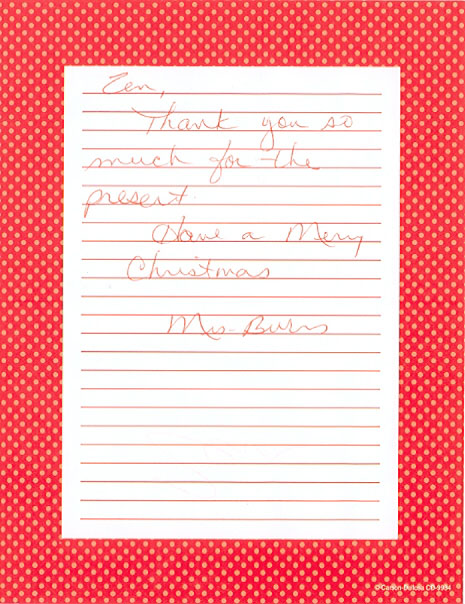 Zen,
Thank you so
much for the
present.
Have a Merry
Christmas
Mrs. Burns
© Carson-Dellosa CD-9934